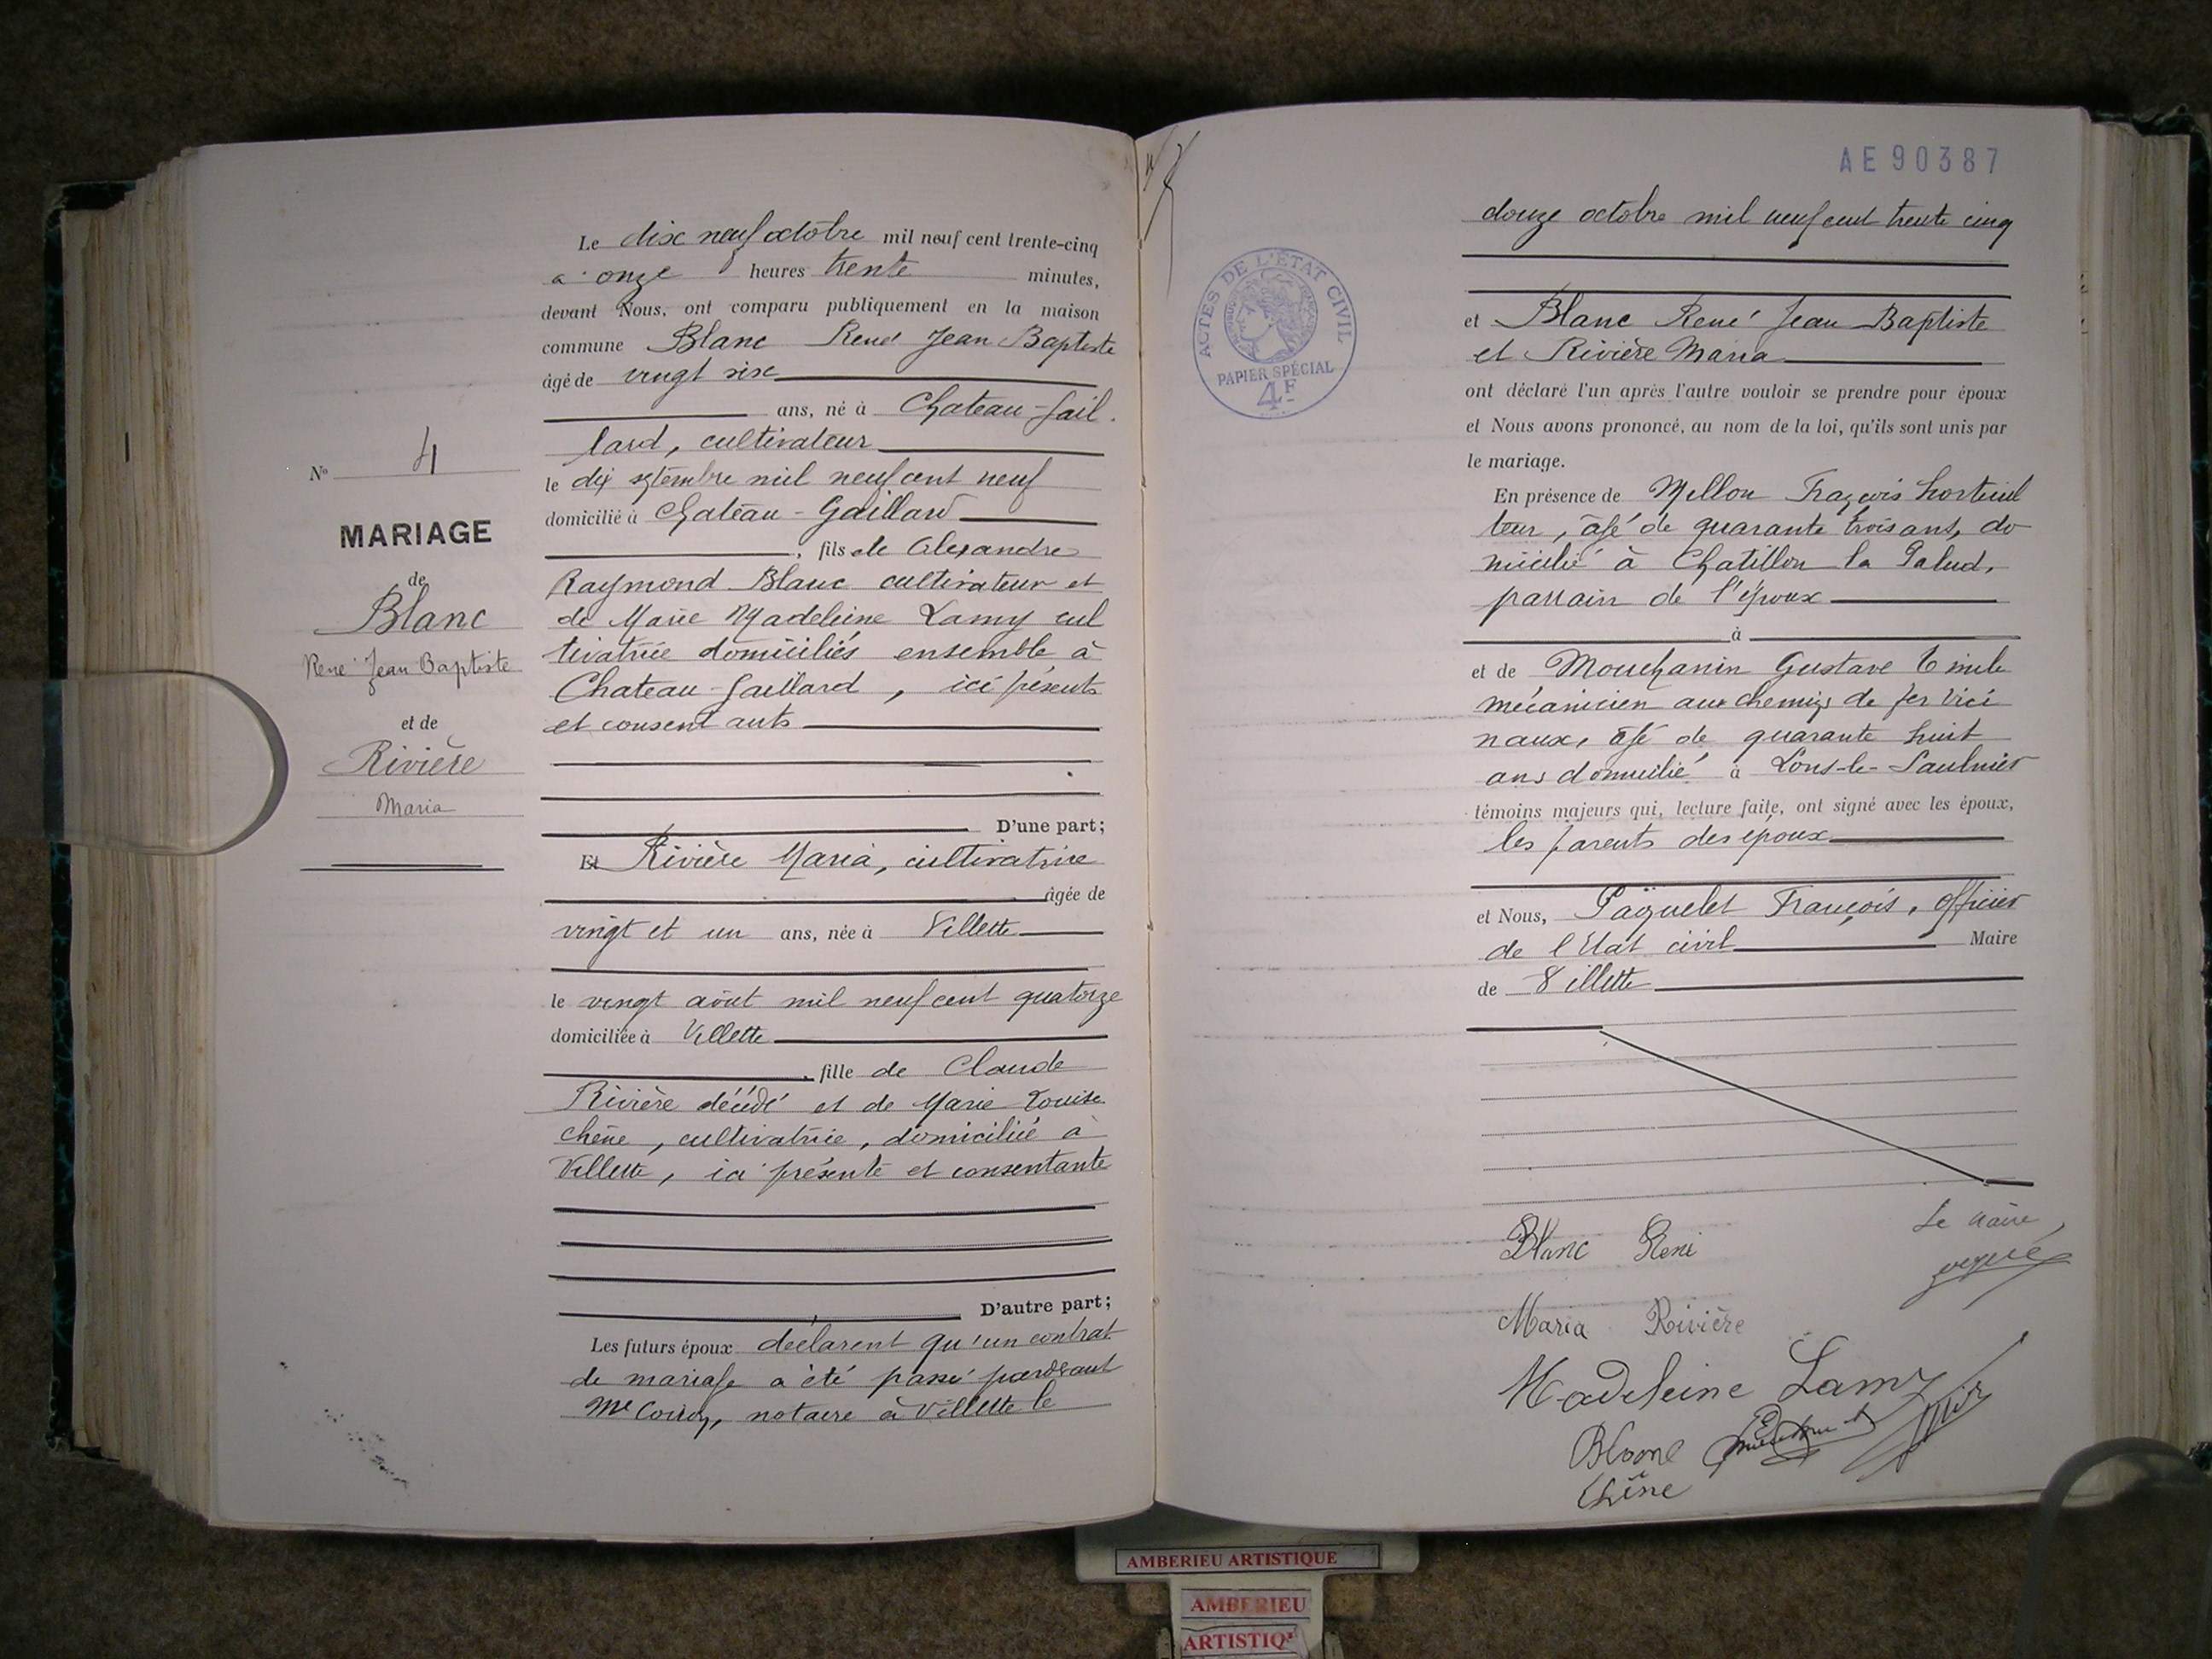 Le dix neuf octobre mil neuf cent trente-cinq
a onze heures trente minutes,
devant Nous, ont comparu publiquement en la maison
commune Blanc René Jean Baptiste
âgé de vingt six
ans, né à Chateau-Gail
lard, cultivateur
le dix septembre mil neuf cent neuf
domicilié à Château-Gaillard
, fils de Alexandre
Raymond Blanc cultivateur et
de Marie Madeleine Lamy cul
tivatrice domiciliés ensemble à
Chateau-Gaillard, ici présents
et consentants
D'une part;
Et Rivière Maria, cultivatrice
âgée de
vingt et un ans, née à Villette
le vingt août mil neuf cent quatorze
domiciliée à Villette
, fille de Claude
Rivière décédé et de Marie Louise
Chêne, cultivatrice, domiciliée à
Villette, ici présente et consentante
D'autre part;
Les futurs époux déclarent qu'un contrat
de mariage a été passé pardevant
Me notaire à Villette le
No 4
MARIAGE
de
Blanc
René Jean Baptiste
et de
Rivière
Maria
AE90387
ACTES DE L'ÉTAT CIVIL
PAPIER SPÉCIAL
4F
douze octobre mil neuf cent trente cinq
et Blanc René Jean Baptiste
et Rivière Maria
ont déclaré l'un après l'autre vouloir se prendre pour époux
et Nous avons prononcé, au nom de la loi, qu'ils sont unis par
le mariage.
En présence de Millon François horticul
teur, âgé de quarante trois ans, do
micilié à Chatillon la Palud,
parrain de l'époux
à
et de Mouchanin Gustave Emile
mécanicien aux chemins de fer vici
naux, âgé de quarante huit
ans domicilié à Lons-le-Saulnier
témoins majeurs qui, lecture faite, ont signé avec les époux,
les parents des époux
et Nous, Paquelet François, officier
de l'Etat civil Maire
de Villette
Blanc René
Le Maire,
Maria Rivière
Madeleine Lamy
Blanc
Chêne
AMBERIEU ARTISTIQUE
AMBERIEU
ARTISTIQ